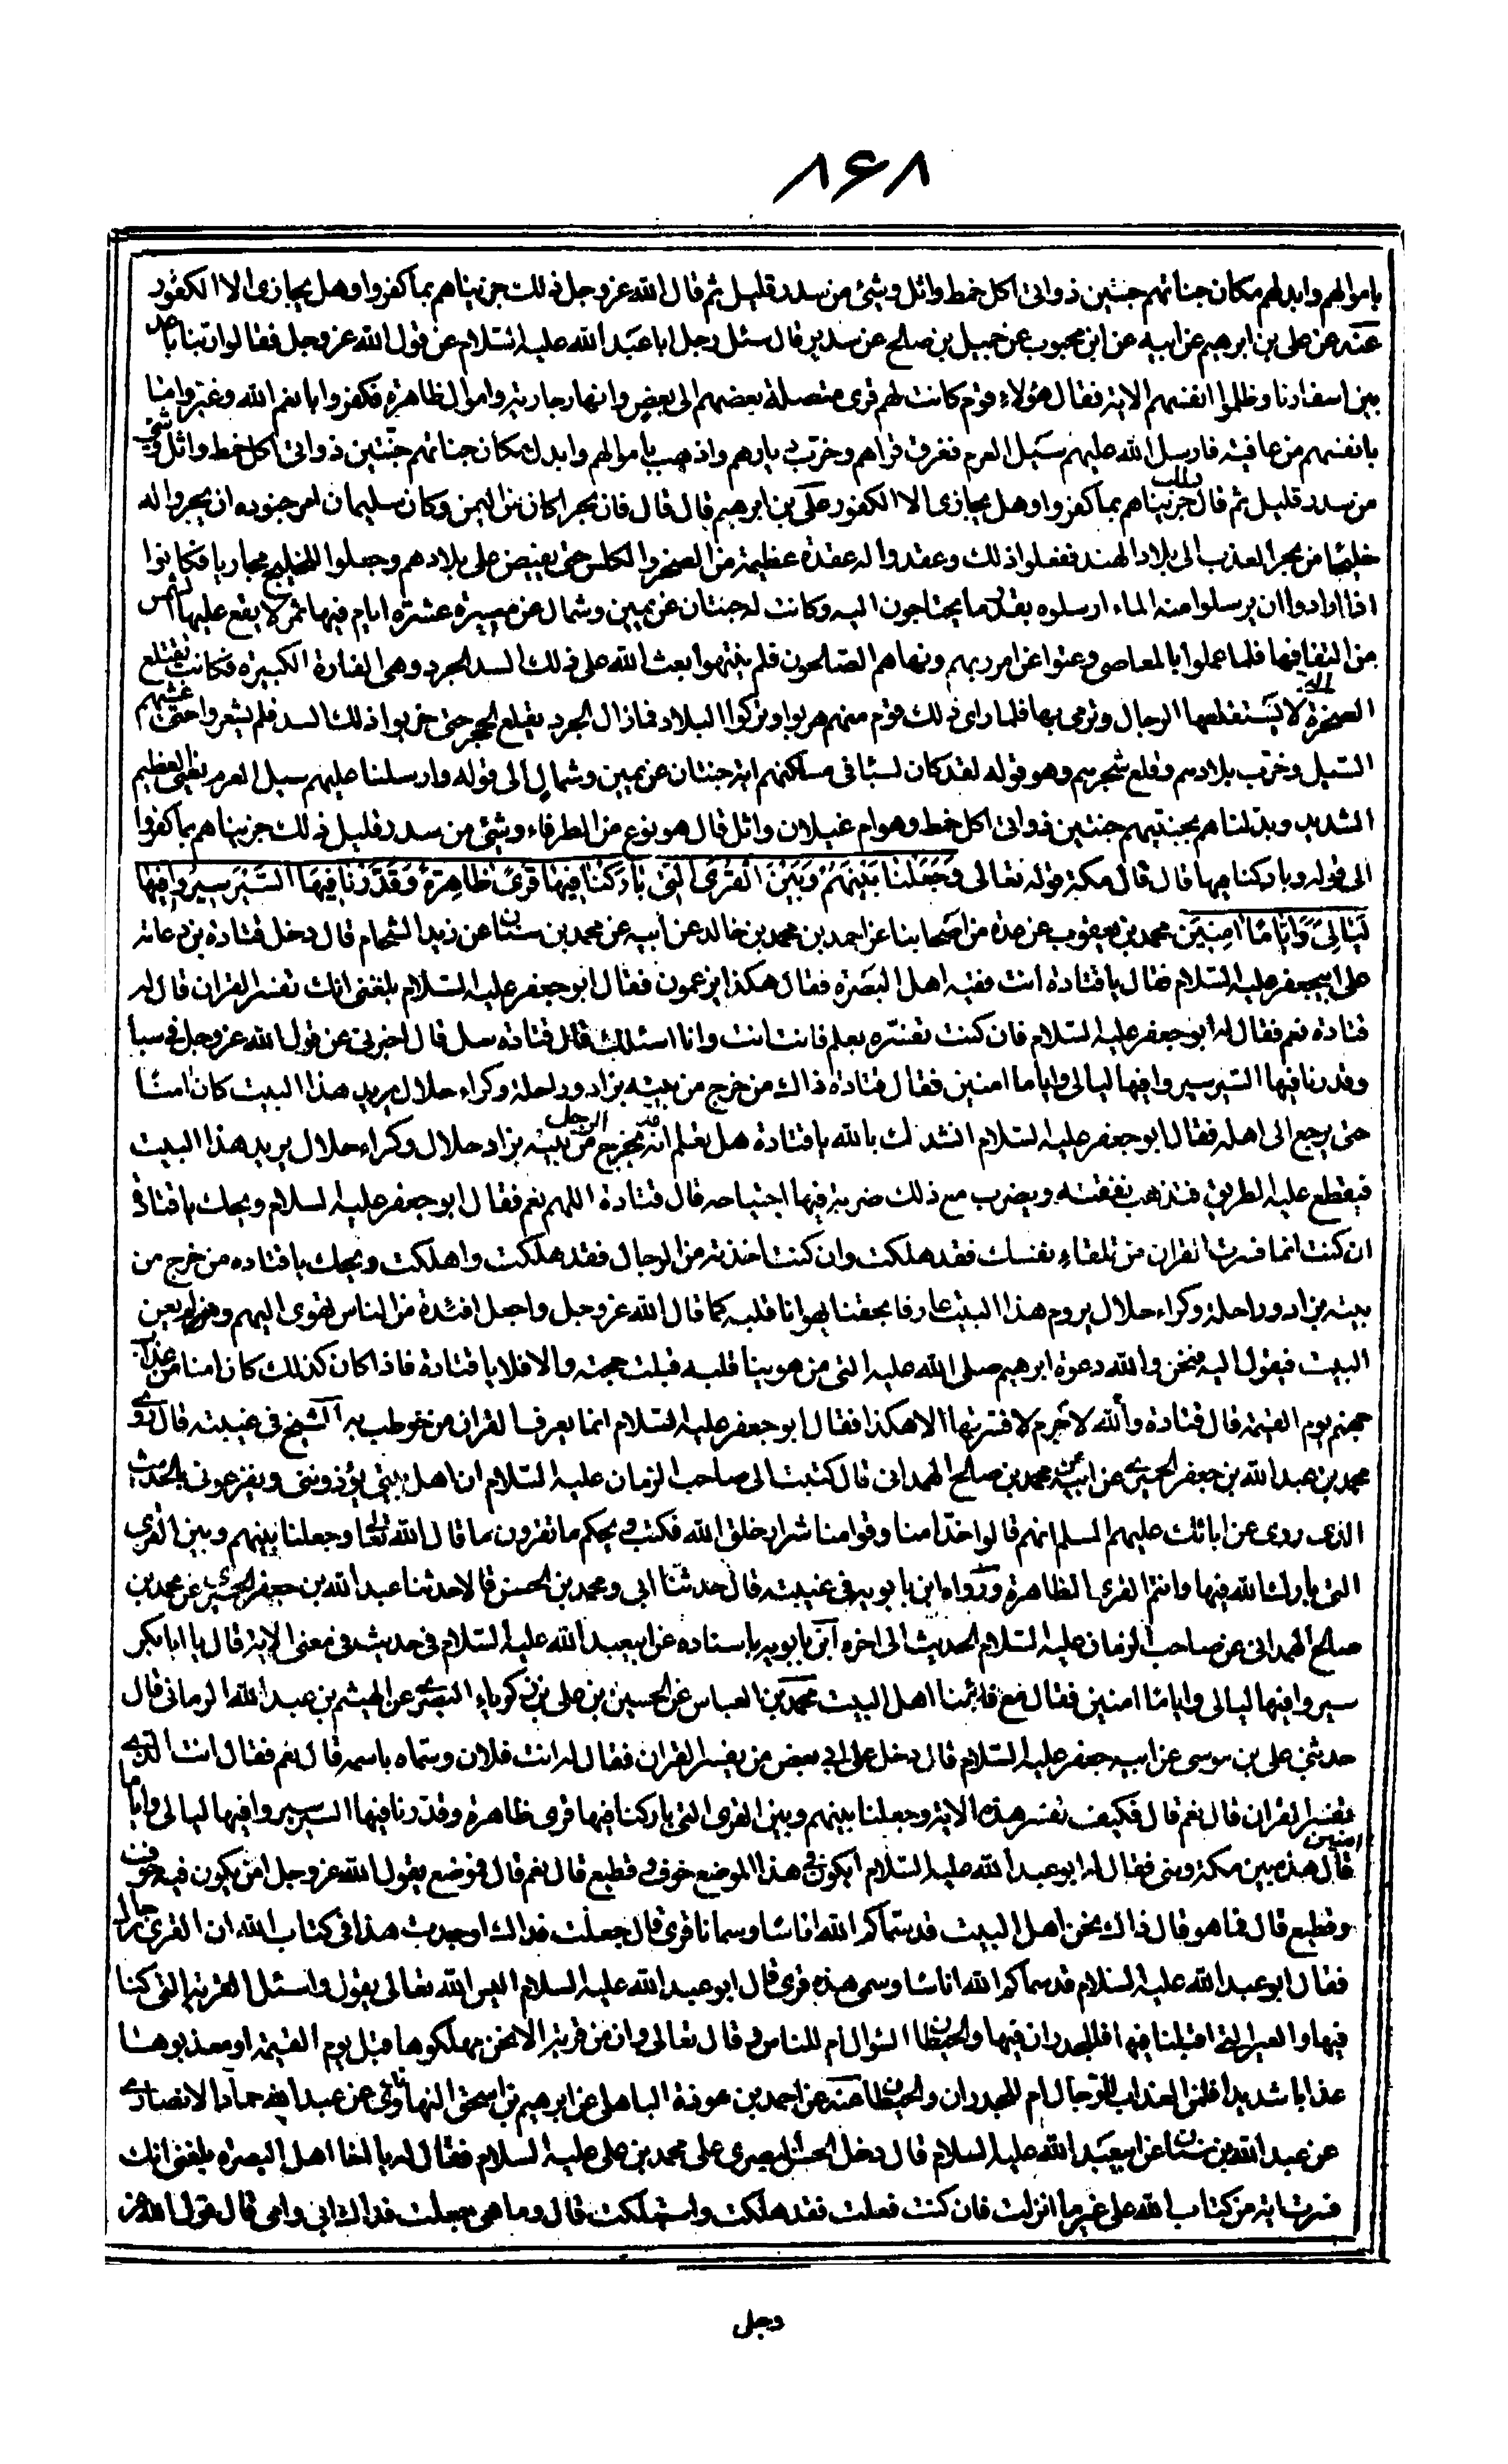 ٨۶٨
باموالهم وابدلهم مكان جناتهم جنتين ذواتى اكل خمط واثل وشئ من سدر قليل ثم قال الله عز وجل ذلك جزيناهم بما كفروا وهل يجازى الا الكفور
عنه عن على بن ابرهيم عن ابيه عن ابن محبوب عن جميل بن صالح عن سدير قال سئل رجل ابا عبد الله عليه السلام عن قول الله عز وجل فقالوا ربنا باعد
بين اسفارنا وظلموا انفسهم الاية فقال هؤلاء قوم كانت لهم قرى متصلة بعضهم الى بعض وانهار جارية واموال ظاهرة فكفروا بانعم الله وغيروا ما
بانفسهم من عافية فارسل الله عليهم سيل العرم فغرق قراهم وخرب ديارهم واذهب باموالهم وابدل مكان جناتهم جنتين ذواتى اكل خمط واثل وشئ
من سدر قليل ثم قال ذلك جزيناهم بما كفروا وهل يجازى الا الكفور على بن ابرهيم قال قال فان بحرا كان من اليمن وكان سليمان امر جنوده ان يجروا له
خليجا من بحر العذب الى بلاد الهند ففعلوا ذلك وعقدوا له عقدة عظيمة من الصخر والكلس حتى يفيض على بلادهم وجعلوا للخليج مجاريا فكانوا
اذا ارادوا ان يرسلوا منه الماء ارسلوه بقدر ما يحتاجون اليه وكانت له جنتان عن يمين وشمال عن مسيرة عشرة ايام فيها ثمر لا يقع عليها الشمس
من التفافها فلما عملوا بالمعاصى وعتوا عن امر ربهم ونهاهم الصالحون فلم ينتهوا بعث الله على ذلك السد الجرد وهى الفارة الكبيرة فكانت تقتلع
الصخرة التى لا يستقلعها الرجال وترمى بها فلما راى ذلك قوم منهم هربوا وتركوا البلاد فما زال الجرد يقلع الحجر حتى خربوا ذلك السد فلم يشعروا حتى غشيهم
السيل وخرب بلادهم وقلع شجرهم وهو قوله لقد كان لسبا فى مسكنهم اية جنتان عن يمين وشمال الى قوله وارسلنا عليهم سيل العرم يعنى العظيم
الشديد وبدلناهم بجنتيهم جنتين ذواتى اكل خمط وهو ام غيلان واثل قال هو نوع من الطرفاء وشئ من سدر قليل ذلك جزيناهم بما كفروا
الى قوله وباركنا فيها قال قال مكة قوله تعالى وَجَعَلْنا بَيْنَهُمْ وَبَيْنَ الْقُرَى الَّتى بارَكْنا فيها قُرىً ظاهِرَةً وَقَدَّرْنا فيهَا السَّيْرَ سيرُوا فيها
لَيالِىَ وَاَيّامًا آمِنينَ محمد بن يعقوب عن عدة من اصحابنا عن احمد بن محمد بن خالد عن ابيه عن محمد بن سنان عن زيد الشحام قال دخل قتادة بن دعامة
على ابيجعفر عليه السلام فقال يا قتادة انت فقيه اهل البصرة فقال هكذا يزعمون فقال ابوجعفر عليه السلام بلغنى انك تفسر القران قال له
قتادة نعم فقال له ابوجعفر عليه السلام فان كنت تفسره بعلم فانت انت وانا اسئلك قال قتادة سل قال اخبرنى عن قول الله عز وجل فى سبا
وقدرنا فيها السير سيروا فيها ليالى واياما امنين فقال قتادة ذاك من خرج من بيته بزاد وراحلة وكراء حلال يريد هذا البيت كان امنا
حتى يرجع الى اهله فقال ابوجعفر عليه السلام انشدك بالله يا قتادة هل تعلم انه قد يخرج الرجل من بيته بزاد حلال وكراء حلال يريد هذا البيت
فيقطع عليه الطريق فتذهب نفقته ويضرب مع ذلك ضربة فيها اجتياحه قال قتادة اللهم نعم فقال ابوجعفر عليه السلام ويحك يا قتادة
ان كنت انما فسرت القران من تلقاء نفسك فقد هلكت وان كنت اخذته من الرجال فقد هلكت واهلكت ويحك يا قتاده من خرج من
بيته بزاد وراحلة وكراء حلال يروم هذا البيت عارفا بحقنا يهوانا قلبه كما قال الله عز وجل واجعل افئدة من الناس تهوى اليهم ولم يعن
البيت فيقول اليه فنحن والله دعوة ابرهيم صلى الله عليه التى من هوينا قلبه قبلت حجته والا فلا يا قتادة فاذا كان كذلك كان امنا من عذاب
جهنم يوم القيمة قال قتادة والله لا جرم لا فسرتها الا هكذا فقال ابوجعفر عليه السلام انما يعرف القران من خوطب به الشيخ فى غيبته قال روى
محمد بن عبد الله بن جعفر الحميرى عن ابيه عن محمد بن صالح الهمدانى قال كتبت الى صاحب الزمان عليه السلام ان اهل بيتى يؤذوننى ويقرعونى بالحديث
الذى روى عن ابائك عليهم السلم انهم قالوا خدامنا وقوامنا شرار خلق الله فكتب ويحكم ما تقرون ما قال الله تعالى وجعلنا بينهم وبين القرى
التى بارك الله فيها وانتم القرى الظاهرة ورواه ابن بابويه فى غيبته قال حدثنا ابى ومحمد بن الحسن قالا حدثنا عبد الله بن جعفر الحميرى عن محمد بن
صالح الهمدانى عن صاحب الزمان عليه السلام الحديث الى اخره ابن بابويه باسناده عن ابيعبد الله عليه السلام فى حديث فى معنى الاية قال يا ابابكر
سيروا فيها ليالى واياما امنين فقال مع قائمنا اهل البيت محمد بن العباس عن الحسين بن على بن زكوياء البصرى عن الهيثم بن عبد الله الرمانى قال
حدثنى على بن موسى عن ابيه جعفر عليه السلام قال دخل على ابى بعض من يفسر القران فقال له انت فلان وسماه باسمه قال نعم فقال انت الذى
تفسر القران قال نعم قال فكيف تفسر هذه الاية وجعلنا بينهم وبين القرى التى باركنا فيها قرى ظاهرة وقدرنا فيها السير سيروا فيها ليالى واياما
امنين قال هذه بين مكة ومنى فقال له ابو عبد الله عليه السلام ايكون فى هذا الموضع خوف وقطيع قال نعم قال فموضع يقول الله عز وجل امن يكون فيه خوف
وقطيع قال فما هو قال ذاك نحن اهل البيت قد سماكم الله اناسا وسمانا قرى قال جعلت فداك اوجدت هذا فى كتاب الله ان القرى رجال
فقال ابوعبد الله عليه السلام قد سماكم الله اناسا وسمى هذه قرى قال ابوعبد الله عليه السلام اليس الله تعالى يقول واسئل القرية التى كنا
فيها والعير التى اقبلنا فيها فللجدران فيها والحيطان السؤال ام للناس وقال تعالى وان من قرية الا نحن مهلكوها قبل يوم القيمة او معذبوها
عذابا شديدا فلمن العذاب للرجال ام للجدران والحيطان عنه عن احمد بن هوذة الباهلى عن ابرهيم بن اسحق النهاوندى عن عبد الله حماد الانصارى
عن عبد الله بن سنان عن ابيعبد الله عليه السلام قال دخل الحسن البصرى على محمد بن على عليه السلام فقال له يا اخا اهل البصرة بلغنى انك
فسرت اية من كتاب الله على غير ما انزلت فان كنت فعلت فقد هلكت واستهلكت قال وما هى جعلت فداك ابى وامى قال قول الله عز
وجل